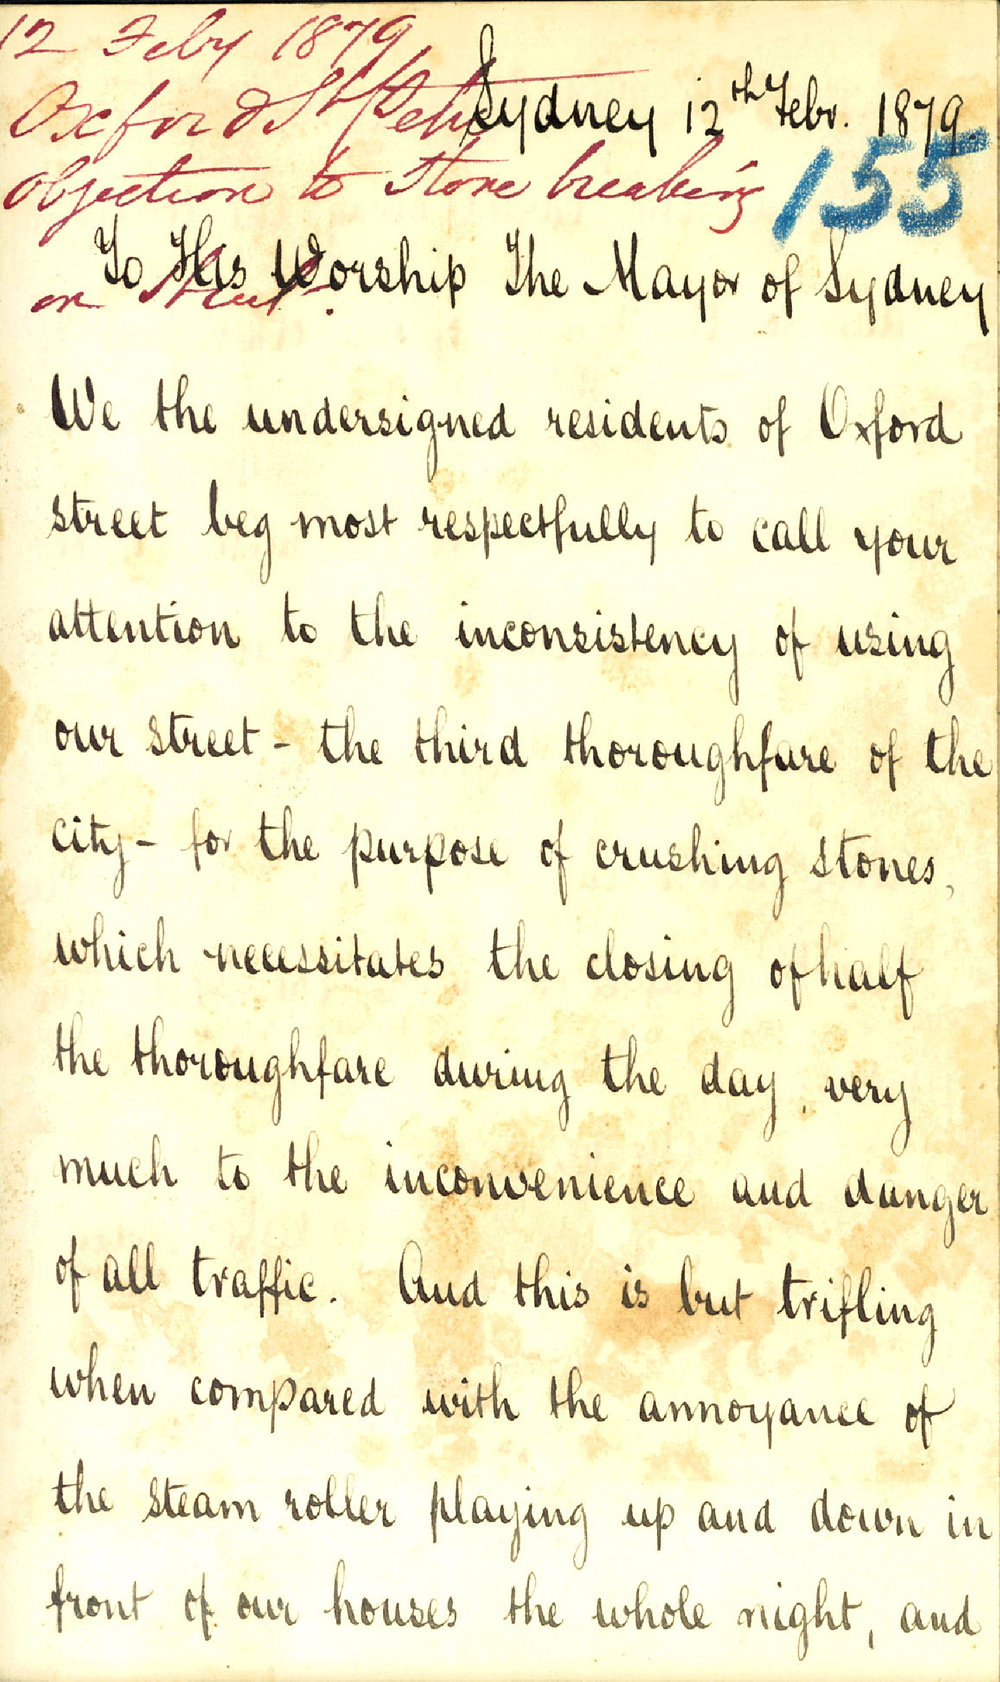 12 Feby 1879
Oxford St Petn
objection to stone breaking
on Street.
Sydney 12th Febr. 1879.
155
To His Worship The Mayor of Sydney
We the undersigned residents of Oxford
street beg most respectfully to call your
attention to the inconsistency of using
our street - the third thoroughfare of the
city - for the purpose of crushing stones,
which necessitates the closing of half
the thoroughfare during the day, very
much to the inconvenience and danger
of all traffic. And this is but trifling
when compared with the annoyance of
the steam roller playing up and down in
front of our houses the whole night, and